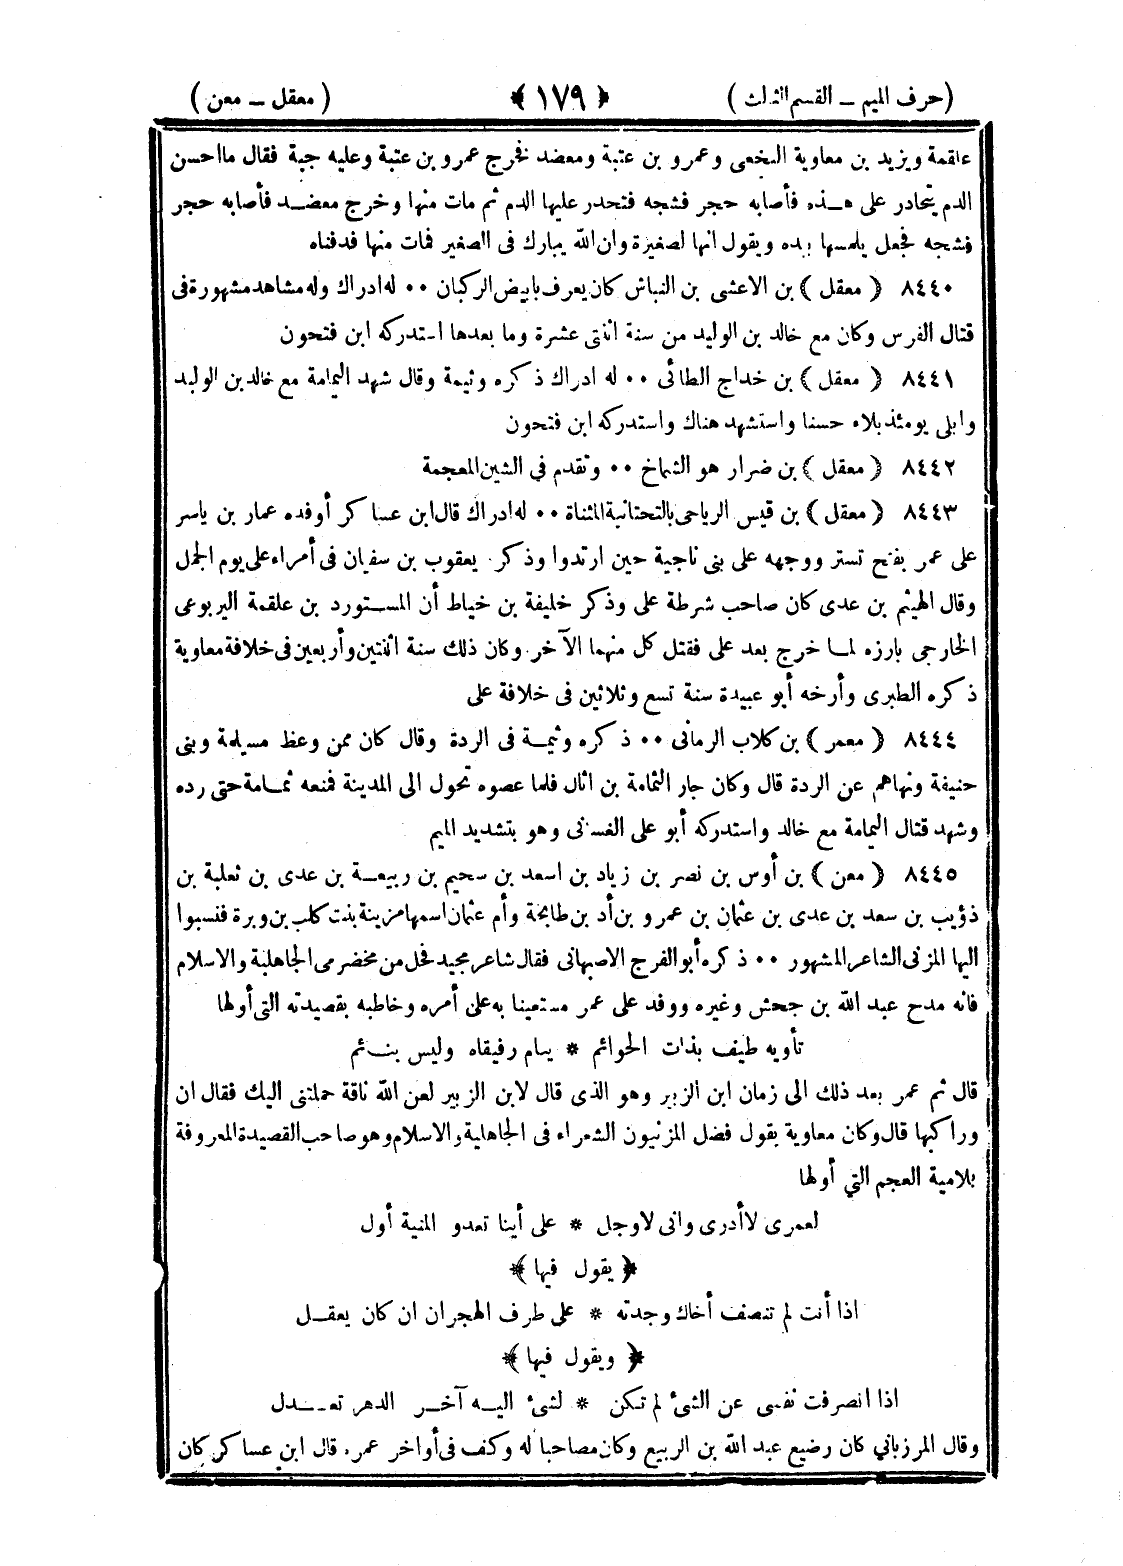 (حرف الميم ــ القسم الثالث) ﴿ ١٧٩ ﴾ (معقل ــ معن)
علقمة ويزيد بن معاوية النخعى وعمرو بن عتبة ومعضد فخرج عمرو بن عتبة وعليه جبة فقال ما احسن
الدم يتحادر على هـذه فأصابه حجر فشجه فتحدر عليها الدم ثم مات منها وخرج معضـد فأصابه حجر
فشجه فجعل يلمسها بيده ويقول انها لصغيرة وان الله يبارك فى الصغير فمات منها فدفناه
٨٤٤٠ ﴿ معقل ﴾ بن الاعشى بن النباش كان يعرف بابيض الركبان ٠٠ له ادراك وله مشاهد مشهورة فى
قتال الفرس وكان مع خالد بن الوليد من سنة اثنتى عشرة وما بعدها استدركه ابن فتحون
٨٤٤١ ﴿ معقل ﴾ بن خداج الطائى ٠٠ له ادراك ذكره وثيمة وقال شهد اليمامة مع خالد بن الوليد
وابلى يومئذ بلاء حسنا واستشهد هناك واستدركه ابن فتحون
٨٤٤٢ ﴿ معقل ﴾ بن ضرار هو الشماخ ٠٠ وتقدم في الشين المعجمة
٨٤٤٣ ﴿ معقل ﴾ بن قيس الرياحى بالتحتانية المثناة ٠٠ له ادراك قال ابن عساكر أوفده عمار بن ياسر
على عمر بفتح تستر ووجهه على بنى ناجية حين ارتدوا وذكر يعقوب بن سفيان فى أمراء على يوم الجمل
وقال الهيثم بن عدى كان صاحب شرطة على وذكر خليفة بن خياط أن المسـتورد بن علقمة اليربوعى
الخارجى بارزه لمـا خرج بعد على فقتل كل منهما الآخر وكان ذلك سنة اثنتين وأربعين فى خلافة معاوية
ذكره الطبرى وأرخه أبو عبيدة سنة تسع وثلاثين فى خلافة على
٨٤٤٤ ﴿ معمر ﴾ بن كلاب الرمانى ٠٠ ذكره وثيمـة فى الردة وقال كان ممن وعظ مسيلمة وبنى
حنيفة ونهاهم عن الردة قال وكان جار الثمامة بن اثال فلما عصوه تحول الى المدينة فمنعه ثمـامة حتى رده
وشهد قتال اليمامة مع خالد واستدركه أبو على الغسانى وهو بتشديد الميم
٨٤٤٥ ﴿ معن ﴾ بن أوس بن نصر بن زياد بن اسعد بن سحيم بن ربيعـة بن عدى بن ثعلبة بن
ذؤيب بن سعد بن عدى بن عثمان بن عمرو بن أد بن طابخة وأم عثمان اسمها مزينة بنت كلب بن وبرة فنسبوا
اليها المزنى الشاعر المشهور ٠٠ ذكره أبو الفرج الاصبهانى فقال شاعر مجيد فحل من مخضرمى الجاهلية والاسلام
فانه مدح عبد الله بن جحش وغيره ووفد على عمر مستعينا به على أمره وخاطبه بقصيدته التى أولها
تأوبه طيف بذات الجوائم * ينام رفيقاه وليس بنـائم
قال ثم عمر بعد ذلك الى زمان ابن الزبير وهو الذى قال لابن الزبير لعن الله ناقة حملتنى اليك فقال ان
وراكبها قال وكان معاوية يقول فضل المزنيون الشعراء فى الجاهلية والاسلام وهو صاحب القصيدة المعروفة
بلامية العجم التي أولها
لعمرى لا أدرى وانى لاوجل * على أينا تعدو المنية أول
﴿ يقول فيها ﴾
اذا أنت لم تنصف أخاك وجدته * على طرف الهجران ان كان يعقـل
﴿ ويقول فيها ﴾
اذا انصرفت نفسى عن الشئ لم تكن * لشئ اليـه آخـر الدهر تعـدل
وقال المرزباني كان رضيع عبد الله بن الربيع وكان مصاحبا له وكف فى أواخر عمره قال ابن عساكر كان